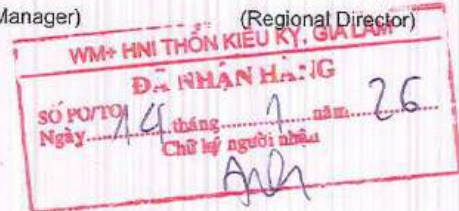 Manager) (Regional Director)
WM+ HNI THÔN KIÊU KỴ, GIA LÂM
ĐÃ NHẬN HÀNG
SỐ PO/TO
Ngày 14 tháng 1 năm 26
Chữ ký người nhận
Anh